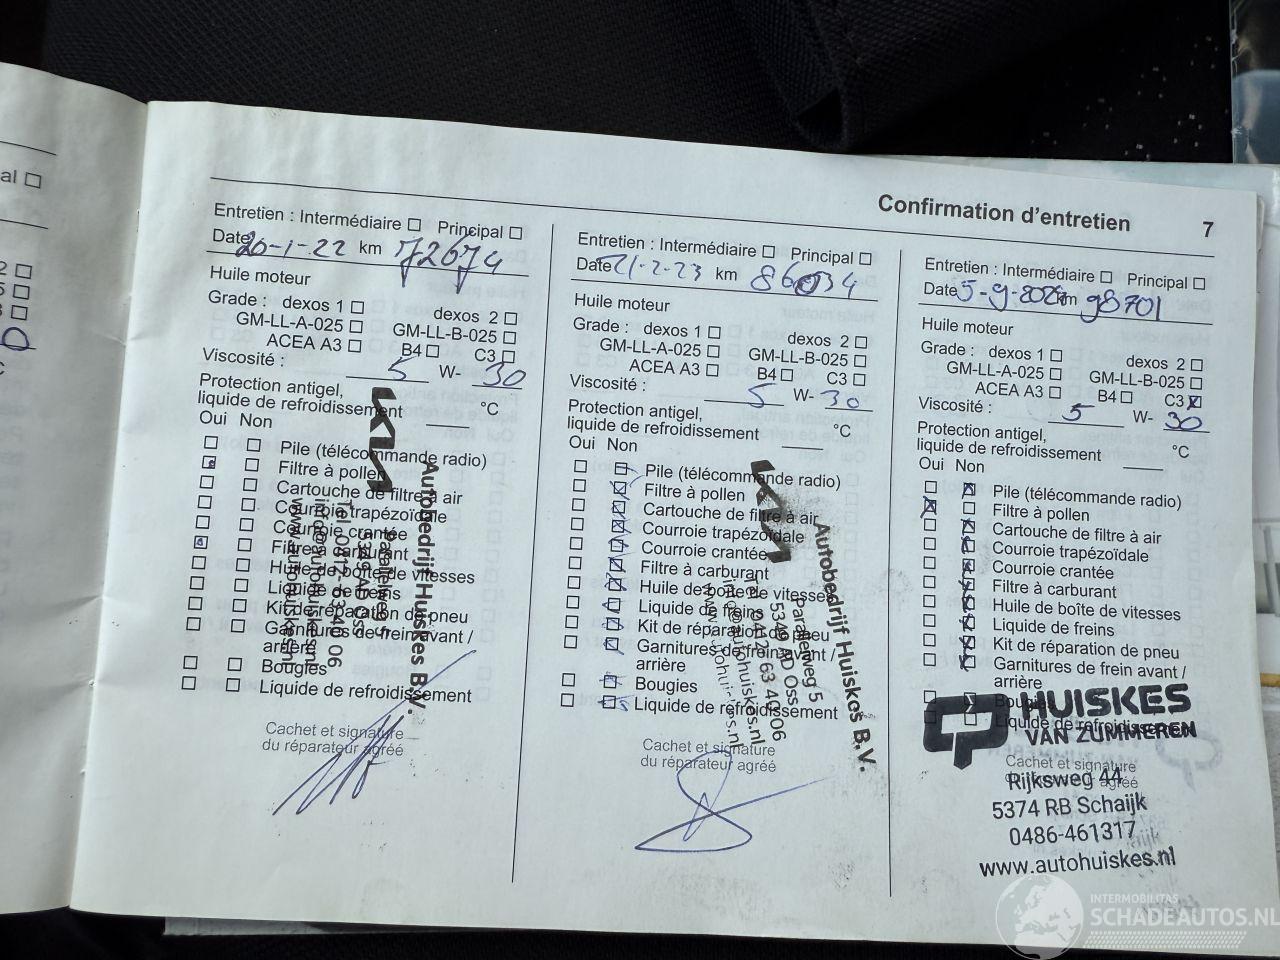 Confirmation d'entretien 7
Entretien : Intermédiaire Principal
Date 20-1-22 km 72674
Huile moteur
Grade : dexos 1 dexos 2
GM-LL-A-025 GM-LL-B-025
ACEA A3 B4 C3
Viscosité : 5 W- 30
Protection antigel,
liquide de refroidissement °C
Oui Non
Pile (télécommande radio)
Filtre à pollen
Cartouche de filtre à air
Courroie trapézoïdale
Courroie crantée
Filtre à carburant
Huile de boîte de vitesses
Liquide de freins
Kit de réparation de pneu
Garnitures de frein avant /
arrière
Bougies
Liquide de refroidissement
Cachet et signature
du réparateur agréé
Autobedrijf Huiskes B.V.
Paralelweg 5
5349 AD Oss
tel. 0412-63 40 06
info@autohuiskes.nl
www.autohuiskes.nl
Entretien : Intermédiaire Principal
Date 21-2-23 km 86034
Huile moteur
Grade : dexos 1 dexos 2
GM-LL-A-025 GM-LL-B-025
ACEA A3 B4 C3
Viscosité : 5 W- 30
Protection antigel,
liquide de refroidissement °C
Oui Non
Pile (télécommande radio)
Filtre à pollen
Cartouche de filtre à air
Courroie trapézoïdale
Courroie crantée
Filtre à carburant
Huile de boîte de vitesses
Liquide de freins
Kit de réparation de pneu
Garnitures de frein avant /
arrière
Bougies
Liquide de refroidissement
Cachet et signature
du réparateur agréé
Autobedrijf Huiskes B.V.
Paralelweg 5
5349 AD Oss
tel. 0412-63 40 06
info@autohuiskes.nl
www.autohuiskes.nl
Entretien : Intermédiaire Principal
Date 5-9-2024 km 98701
Huile moteur
Grade : dexos 1 dexos 2
GM-LL-A-025 GM-LL-B-025
ACEA A3 B4 C3
Viscosité : 5 W- 30
Protection antigel,
liquide de refroidissement °C
Oui Non
Pile (télécommande radio)
Filtre à pollen
Cartouche de filtre à air
Courroie trapézoïdale
Courroie crantée
Filtre à carburant
Huile de boîte de vitesses
Liquide de freins
Kit de réparation de pneu
Garnitures de frein avant /
arrière
Bougies
Liquide de refroidissement
Cachet et signature
du réparateur agréé
HUISKES
VAN ZUMMEREN
Rijksweg 44
5374 RB Schaijk
0486-461317
www.autohuiskes.nl
INTERMOBILITAS
SCHADEAUTOS.NL